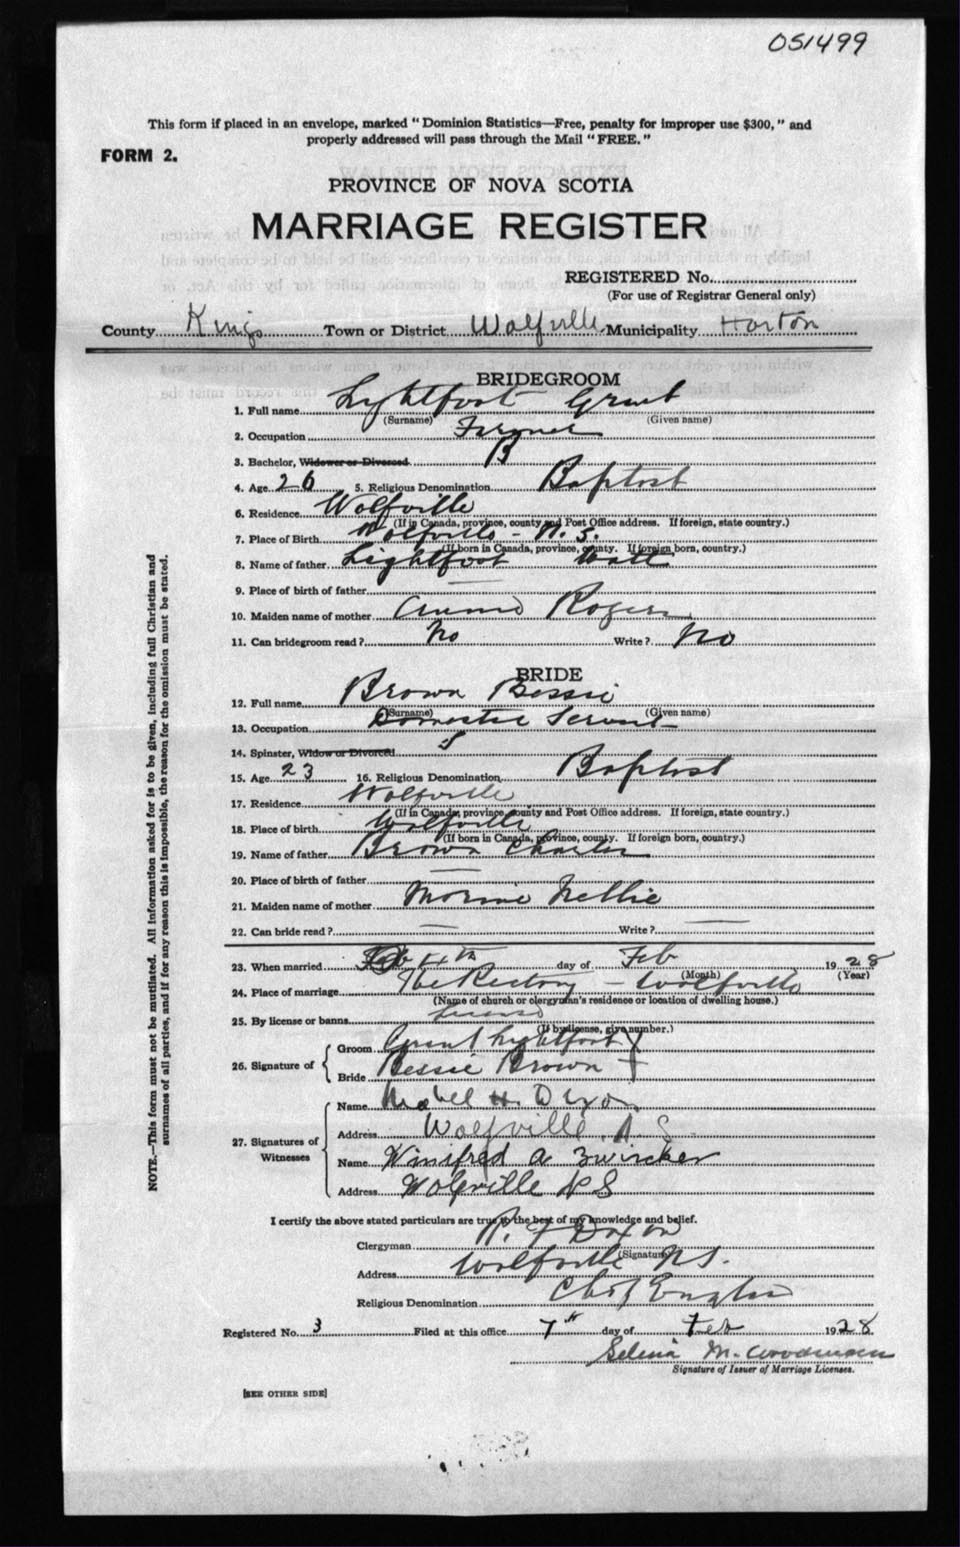 051499
This form if placed in an envelope, marked "Dominion Statistics—Free, penalty for improper use $300," and
properly addressed will pass through the Mail "FREE."
FORM 2.
PROVINCE OF NOVA SCOTIA
MARRIAGE REGISTER
REGISTERED No.
(For use of Registrar General only)
County Kings Town or District Wolfville Municipality Horton
BRIDEGROOM
1. Full name Lightfoot Grant
(Surname) (Given name)
2. Occupation Farmer
3. Bachelor, Widower or Divorced B
4. Age 26 5. Religious Denomination Baptist
6. Residence Wolfville
(If in Canada, province, county and Post Office address. If foreign, state country.)
7. Place of Birth Wolfville - N. S.
(If born in Canada, province, county. If foreign born, country.)
8. Name of father Lightfoot
9. Place of birth of father —
10. Maiden name of mother Annie Rogers
11. Can bridegroom read? No Write? No
BRIDE
12. Full name Brown Bessie
(Surname) (Given name)
13. Occupation Domestic Servant
14. Spinster, Widow or Divorced S
15. Age 23 16. Religious Denomination Baptist
17. Residence Wolfville
(If in Canada, province, county and Post Office address. If foreign, state country.)
18. Place of birth Wolfville
(If born in Canada, province, county. If foreign born, country.)
19. Name of father Brown Charles
20. Place of birth of father —
21. Maiden name of mother Nellie
22. Can bride read? — Write? —
23. When married day of Feb 1928
(Month) (Year)
24. Place of marriage The Rectory - Wolfville
(Name of church or clergyman's residence or location of dwelling house.)
25. By license or banns license
(If by license, give number.)
26. Signature of
Groom Grant Lightfoot
Bride Bessie Brown +
27. Signatures of Witnesses
Name Mabel H. Dixon
Address Wolfville, N. S.
Name Winifred A Zwicker
Address Wolfville N S
I certify the above stated particulars are true to the best of my knowledge and belief.
Clergyman R. F Dixon
(Signature)
Address Wolfville N.S.
Religious Denomination Ch of England
Registered No. 3 Filed at this office 7th day of Feb 1928
Selena M.
Signature of Issuer of Marriage Licenses.
[SEE OTHER SIDE]
NOTE.—This form must not be mutilated. All information asked for is to be given, including full Christian and
surnames of all parties, and if for any reason this is impossible, the reason for the omission must be stated.